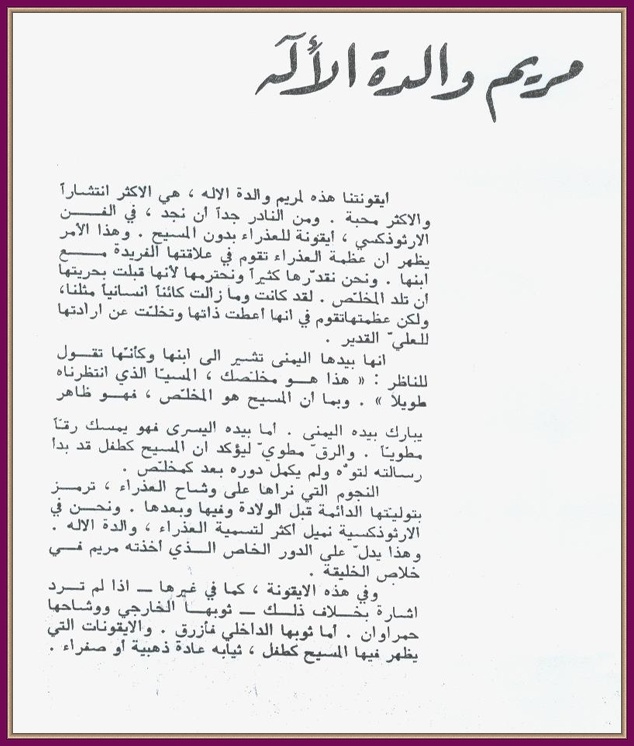 مريم والدة الأله
أيقونتنا هذه لمريم والدة الاله ، هي الاكثر انتشاراً
والاكثر محبة . ومن النادر جداً أن نجد ، في الفــن
الارثوذكسي ، أيقونة للعذراء بدون المسيح . وهذا الأمر
يظهر ان عظمة العـذراء تقوم في علاقتها الفريدة مــع
ابنها . ونحن نقدّرها كثيراً ونحترمها لأنها قبلت بحريتها
أن تلد المخلـّص . لقد كانت وما زالت كائناً انسانياً مثلنا،
ولكن عظمتهاتقوم في انها أعطت ذاتها وتخلـّت عن ارادتها
للعليّ القدير .
انها بيدها اليمنى تشـير الى ابنها وكأنـّها تقــول
للناظر : « هذا هــو مخلـّصك ، المسيـّا الذي انتظرناه
طويلا » . وبما ان المسيح هو المخلـّص ، فهــو ظاهر
يبارك بيده اليمنى . أما بيده اليسرى فهو يمسك رقـّاً
مطويـّاً . والرقّ مطويّ ليؤكد ان المسيح كطفل قد بدأ
رسالته لتوّه ولم يكمل دوره بعد كمخلـّص .
النجوم التي نراها على وشـاح العذراء ، ترمــز
بتوليـّتها الدائمة قبل الولادة وفيها وبعدها . ونحــن في
الارثوذكسية نميل أكثر لتسمية العذراء ، والدة الاله .
وهذا يدلّ على الدور الخاص الــذي أخذته مريم فــي
خلاص الخليقة .
وفي هذه الايقونة ، كما في غيرها ــ اذا لم تــرد
اشارة بخــلاف ذلــك ــ ثوبهــا الخارجي ووشاحها
حمراوان . أما ثوبها الداخلي فأزرق . والايقونات التي
يظهر فيها المسيح كطفل ، ثيابه عادة ذهبية أو صفراء .